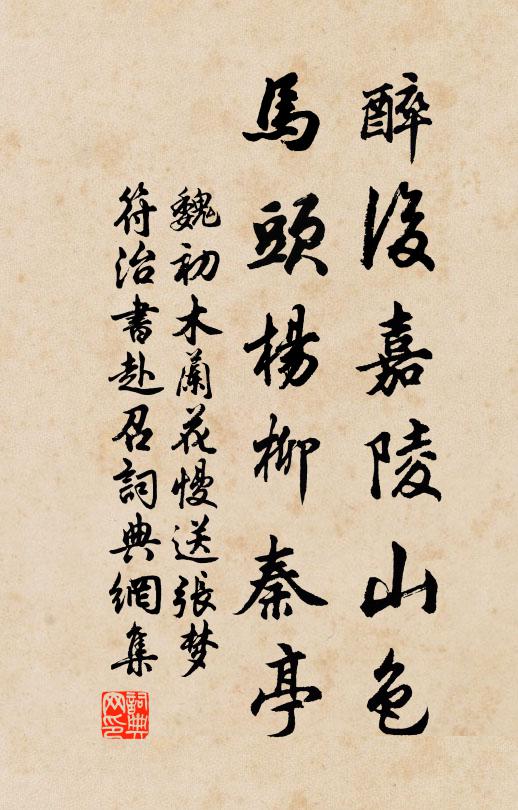 醉後嘉陵山色
馬頭楊柳秦亭
魏初木蘭花慢送張梦
符治書赴召詞典網集
詞典网印